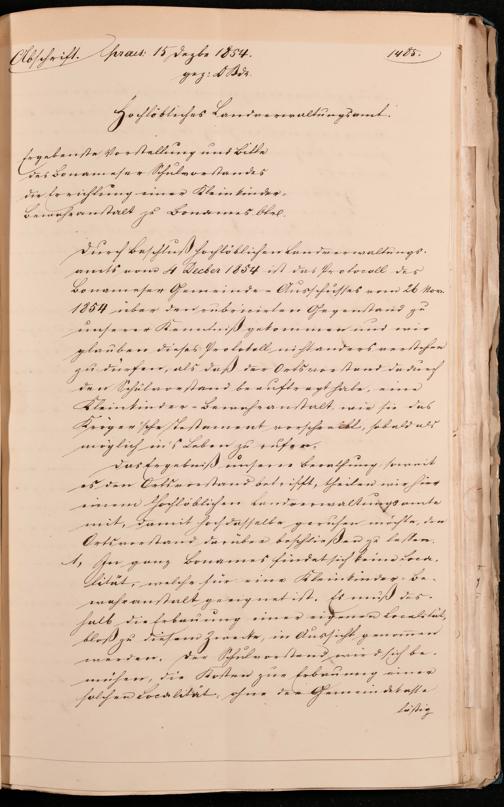 Abschrift. praes: 15 Dezbr 1854. 1485.
gez:
Hochlöbliches Landverwaltungsamt.
Ergebenste Vorstellung und Bitte
des Bonameser Schulvorstandes
die Errichtung einer Kleinkinder-
Bewahranstalt zu Bonames btrl.
Durch Beschluß hochlöblichen Landverwaltungs-
amts vom 4 Decber 1854 ist das Protocoll des
Bonameser Gemeinde Ausschusses vom 26 Nov.
1854 über den rubricirten Gegenstand zu
unserer Kenntniß gekommen und wir
glauben dieses Protokoll nicht anders verstehen
zu dürfen, als daß der Ortsvorstand dadurch
den Schulvorstand beauftragt habe, eine
Kleinkinder-Bewahranstalt, wie sie das
Krögersche Testament vorschreibt, sobald als
möglich in's Leben zu rufen.
Das Ergebniß unserer Berathung, soweit
es den Ortsvorstand betrifft, theilen wir hier
einem Hochlöblichen Landverwaltungsamte
mit, damit hochdasselbe geruhen möchte, den
Ortsvorstand darüber beschließen zu lassen.
1, In ganz Bonames findet sich keine Loca-
lität, welche für eine Kleinkinder-Be-
wahranstalt geeignet ist. Es muß des-
halb die Erbauung einer eigenen Localität,
bloß zu diesem Zwecke, in Aussicht genommen
werden. Der Schulvorstand wird sich be-
mühen, die Kosten zur Erbauung einer
solchen Localität, ohne der Gemeindekasse
lästig